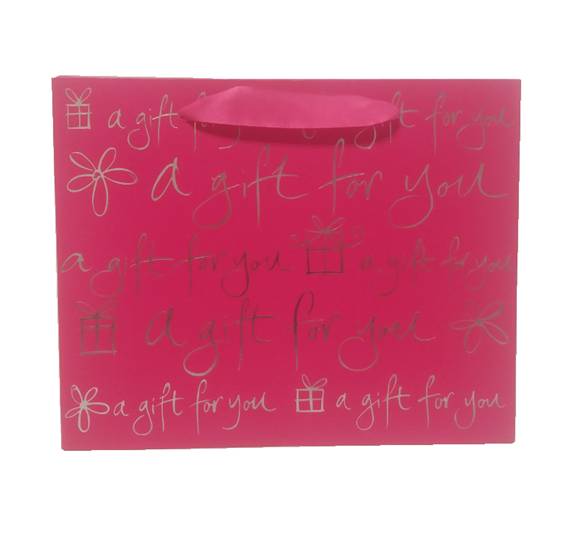 a gift for you a gift for you
a gift for you
a gift for you a gift for you
a gift for you
a gift for you a gift for you